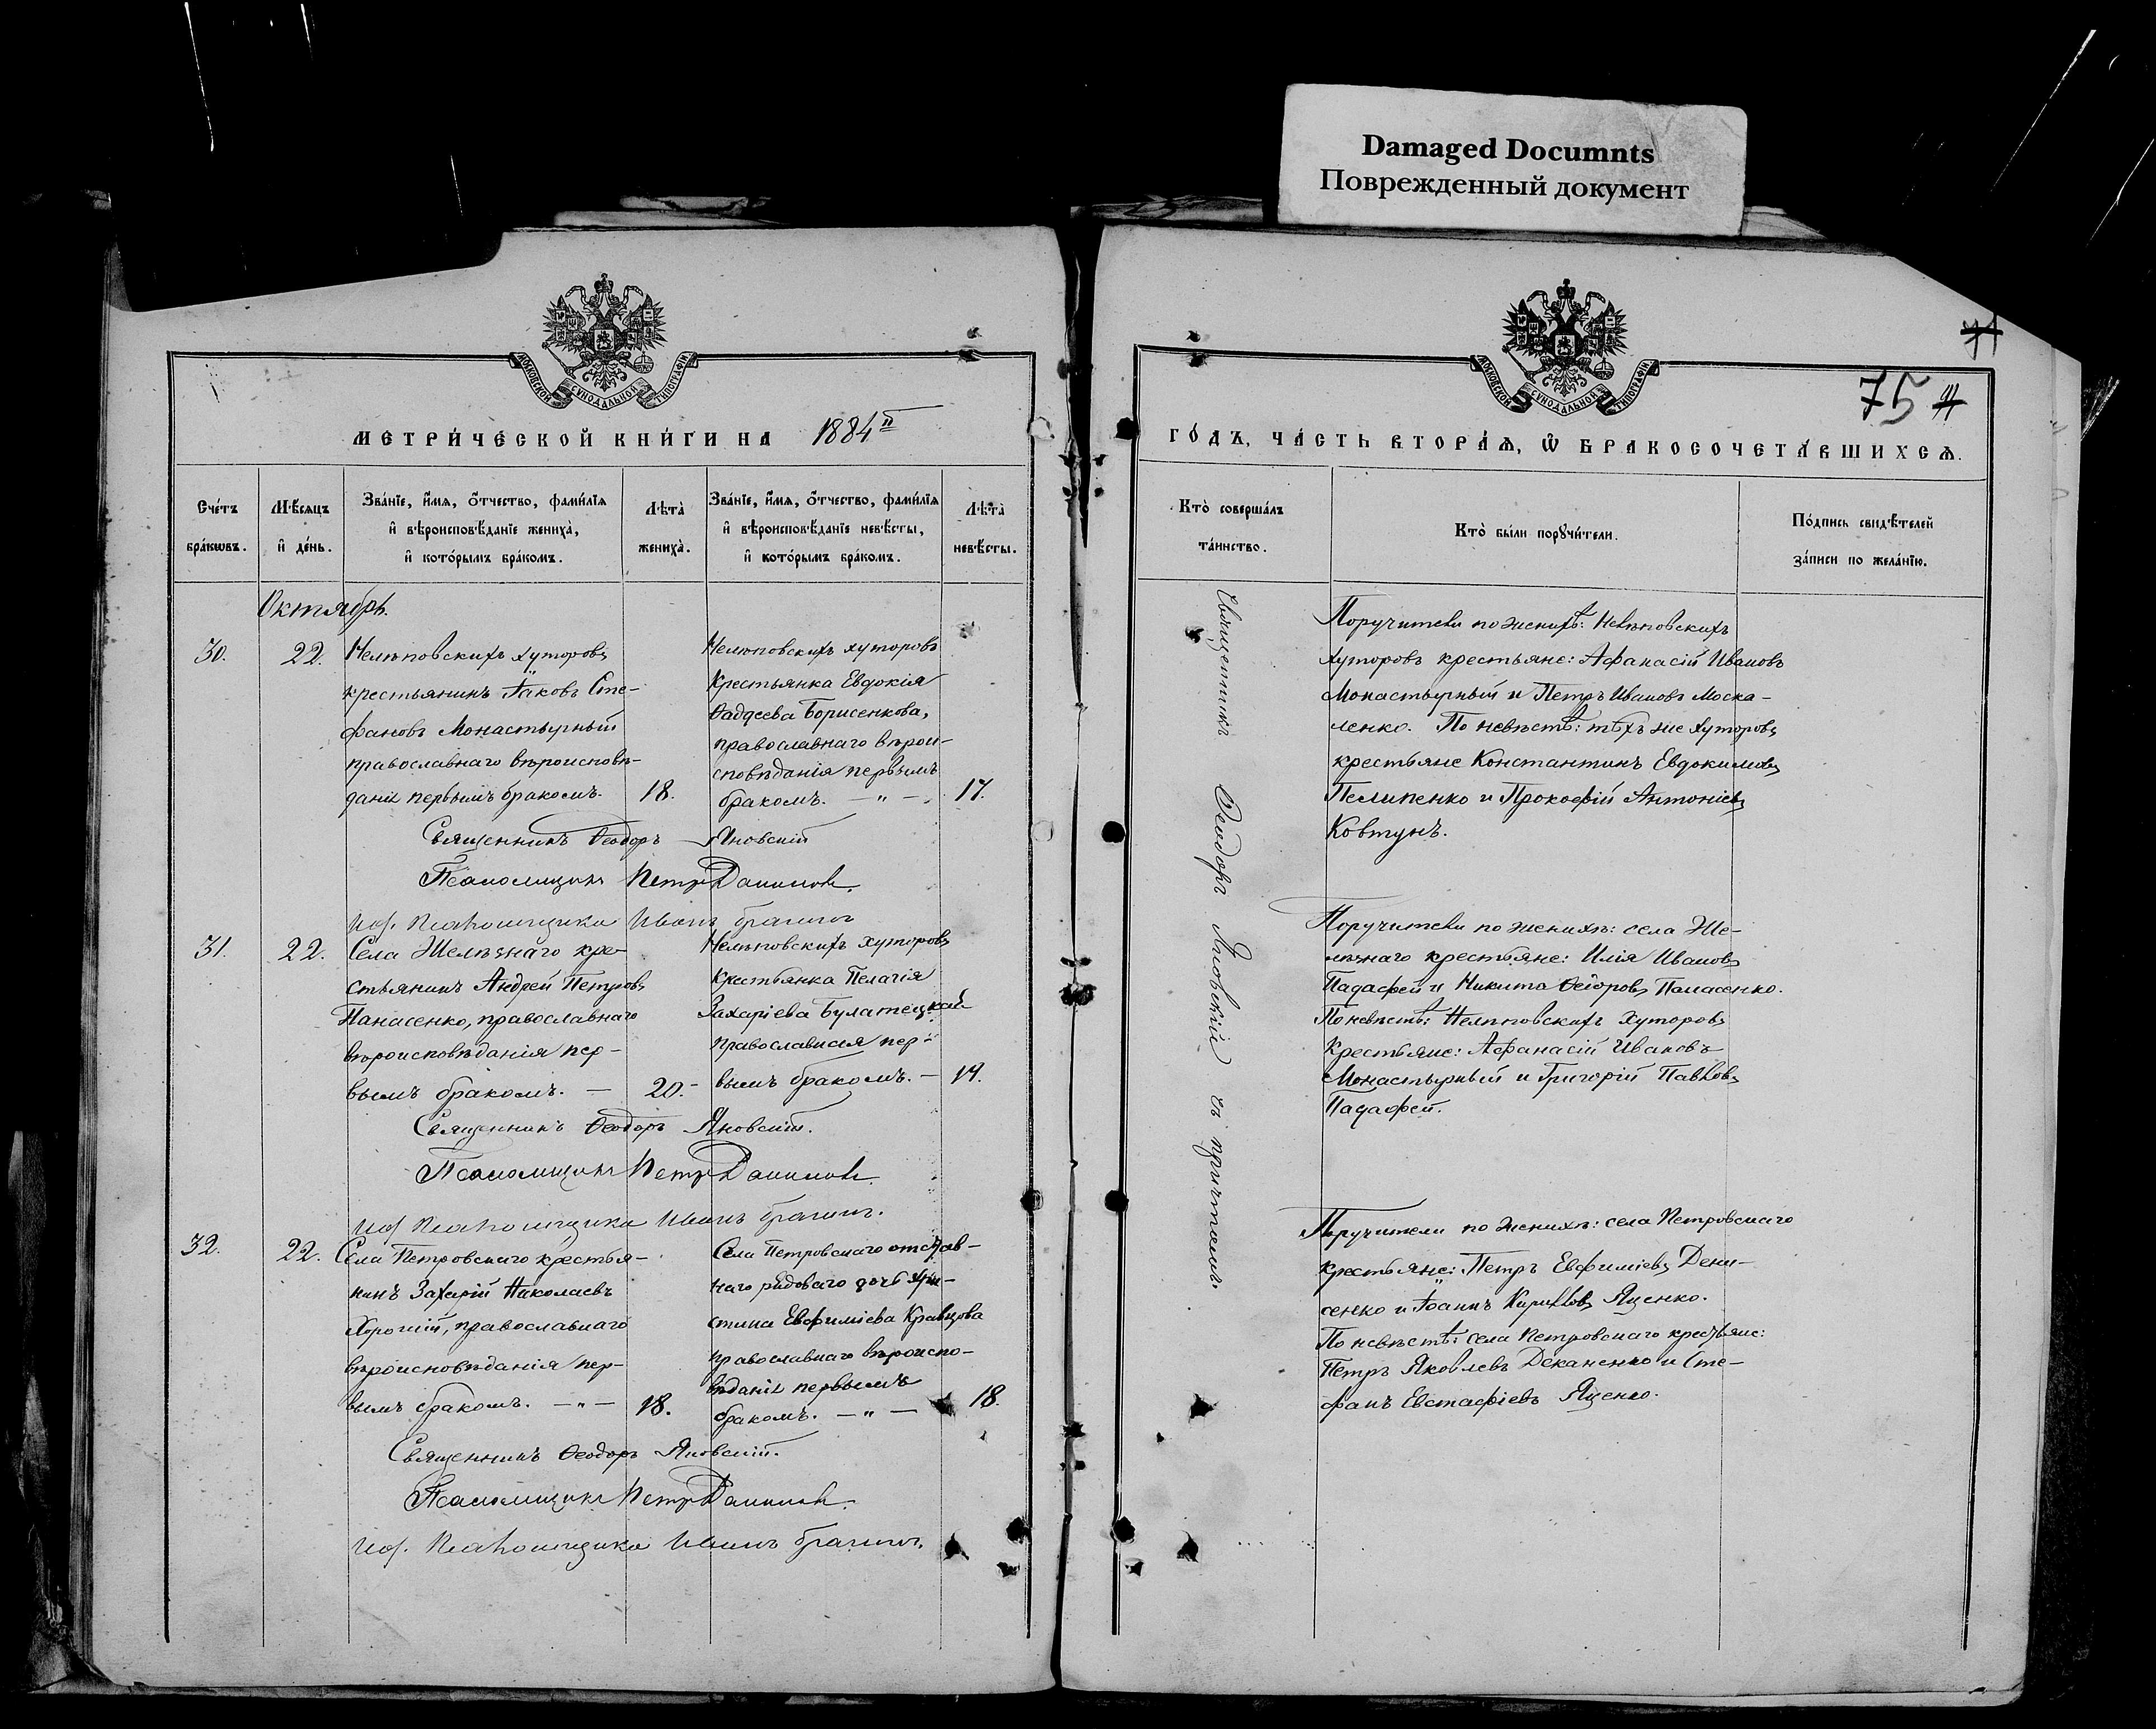 Damaged Documnts
Поврежденный документ
МОСКОВСКОЙ СѴНОДАЛЬНОЙ ТИПОГРАФІИ
МЕТРИ́ЧЕСКОЙ КНИ́ГИ НА 1884 й
Сче́тъ бра́кѡвъ.
Мѣ́сяцъ и҆ де́нь.
Зва́нїе, и҆́мя, ѻ҆́тчество, фами́лїя
и҆ вѣроисповѣ́данїе жениха̀,
и҆ кото́рымъ бра́комъ.
Лѣта̀ жениха̀.
Зва́нїе, и҆́мя, ѻ҆́тчество, фами́лїя
и҆ вѣроисповѣ́данїе невѣ́сты,
и҆ кото́рымъ бра́комъ.
Лѣта̀ невѣ́сты.
Октябрь.
30.
22.
Нелѣповскихъ хуторовъ
крестьянинъ Іаковъ Сте-
фановъ Монастырный
православнаго вѣроисповѣ-
данія первымъ бракомъ.
18.
Нелѣповскихъ хуторовъ
крестьянка Евдокія
Ѳаддеева Борисенкова,
православнаго вѣрои-
сповѣданія первымъ
бракомъ. — " —
17.
Священникъ Ѳеодоръ Яновскій
Псаломщикъ Петръ Данилов.
Иоб. Псаломщика Иванъ
31.
22.
Села Желѣзнаго кре-
стьянинъ Андрей Петровъ
Панасенко, православнаго
вѣроисповѣданія пер-
вымъ бракомъ. —
20.-
Нелѣповскихъ хуторовъ
крестьянка Пелагія
Захаріева Булатецкая
православная пер-
вымъ бракомъ. —
19.
Священникъ Ѳеодоръ Яновскій.
Псаломщикъ Петръ Данилов.
Иоб. Псаломщика Иванъ
32.
22.
Села Петровскаго крестья-
нинъ Захарій Николаевъ
Хорошій, православнаго
вѣроисповѣданія пер-
вымъ бракомъ. — " —
18.
Села Петровскаго отстав-
наго рядоваго дочь Хри-
стина Евфиміева Кравцова
православнаго вѣроиспо-
вѣданія первымъ
бракомъ. — " —
18.
Священникъ Ѳеодоръ Яновскій.
Псаломщикъ Петръ Данилов.
Иоб. Псаломщика Иванъ
МОСКОВСКОЙ СѴНОДАЛЬНОЙ ТИПОГРАФІИ
75
ГО́ДЪ, ЧА́СТЬ ВТОРА́Ѧ, Ѽ БРАКОСОЧЕТА́ВШИХСѦ.
Кто̀ соверша́лъ
та́инство.
Кто̀ бы́ли порꙋчи́тели.
По́дпись свидѣ́телей
за́писи по жела́нїю.
Священникъ Ѳеодоръ Яновскій съ причтомъ.
Поручители по женихѣ: Нелѣповскихъ
хуторовъ крестьяне: Афанасій Ивановъ
Монастырный и Петръ Ивановъ Моска-
ленко. По невѣстѣ: тѣхъ же хуторовъ
крестьяне Константинъ Евдокимовъ
Пелипенко и Прокофій Антоніевъ
Ковтунъ.
Поручители по женихѣ: села Же-
лѣзнаго крестьяне: Илія Ивановъ
Падафей и Никита Ѳеодоровъ Панасенко.
По невѣстѣ: Нелѣповскихъ хуторовъ
крестьяне: Афанасій Ивановъ
Монастырный и Григорій Павловъ
Падафей.
Поручители по женихѣ: села Петровскаго
крестьяне: Петръ Евфиміевъ Дени-
сенко и Іоаннъ Кириловъ Яценко.
По невѣстѣ: села Петровскаго крестьяне:
Петръ Яковлевъ Деканенко и Сте-
фанъ Евстафіевъ Яценко.